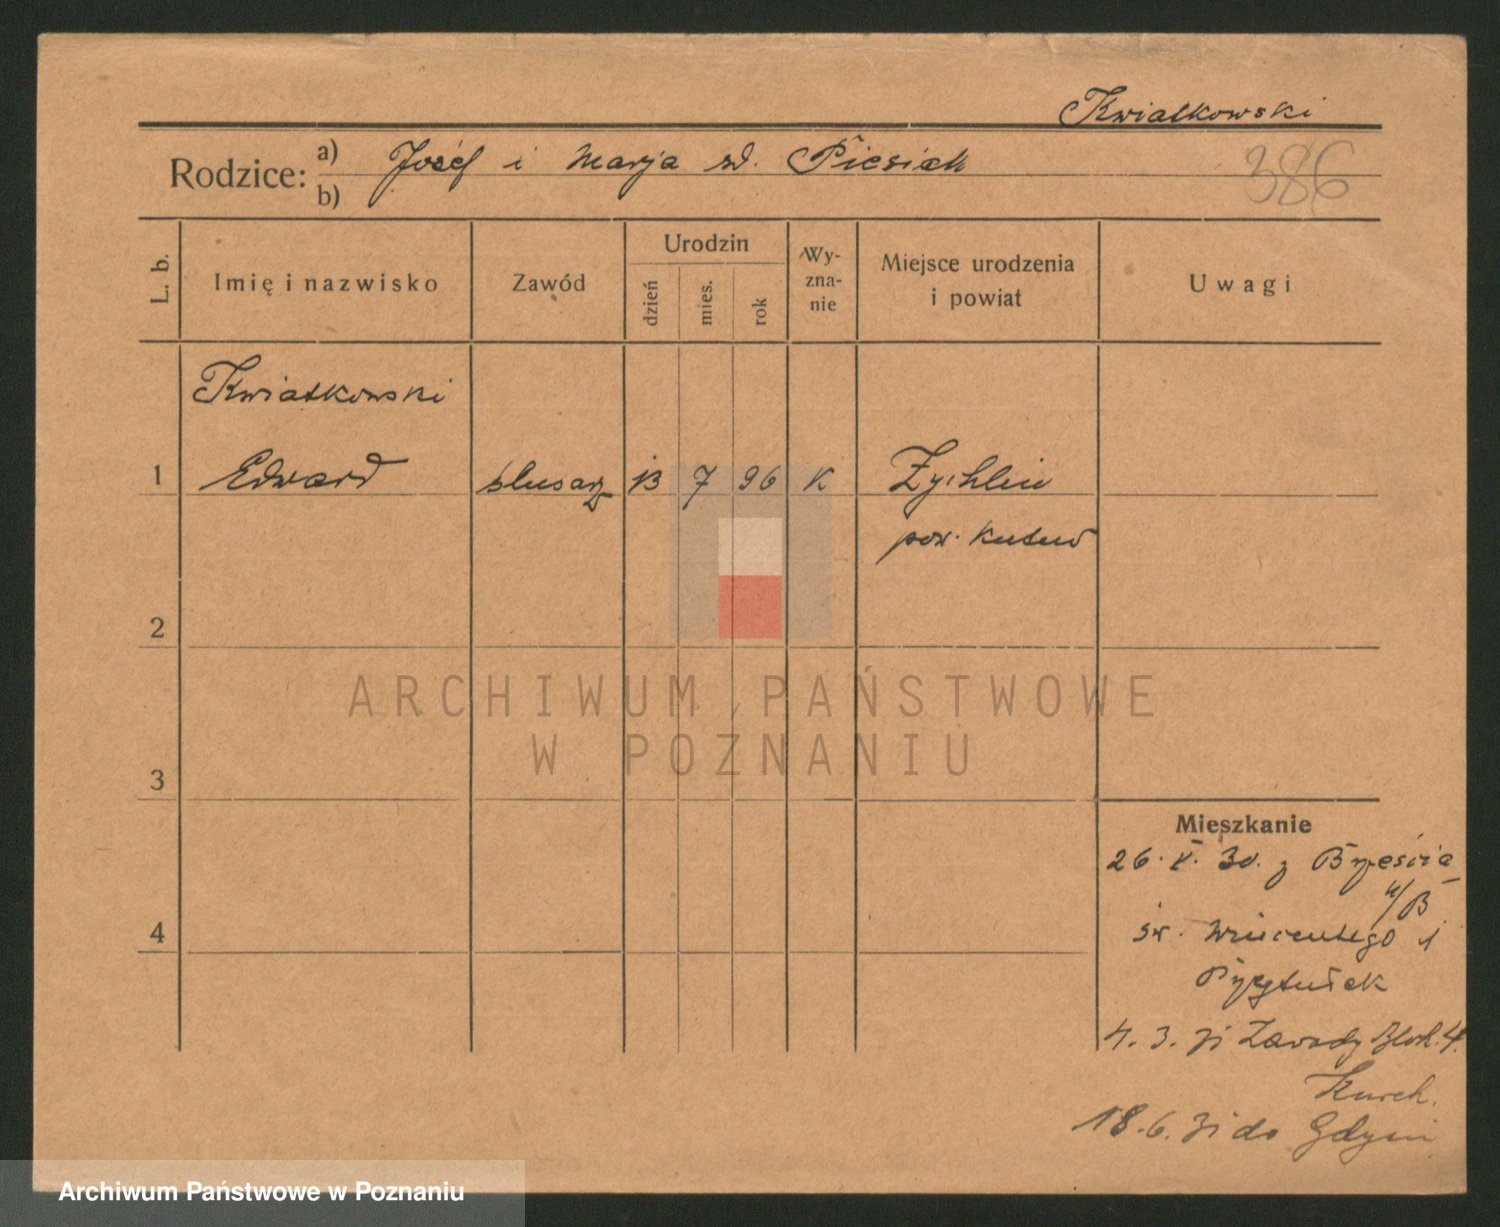 Kwiatkowski
Rodzice: a) Józef i Marja zd. Piesiak
b)
386
L. b.
Imię i nazwisko
Zawód
Urodzin
dzień
mies.
rok
Wy-
zna-
nie
Miejsce urodzenia
i powiat
Uwagi
Kwiatkowski
1 Edward ślusarz 13 7 96 K Żychlin
pow. Kutno
2
ARCHIWUM PAŃSTWOWE
W POZNANIU
3
Mieszkanie
26. V. 30. z Brześcia
n/B
4
św. Wincentego 1
Przytułek
4. 3. 31 Zawady Blok. 4.
18. 6. 31 do Gdyni
Archiwum Państwowe w Poznaniu